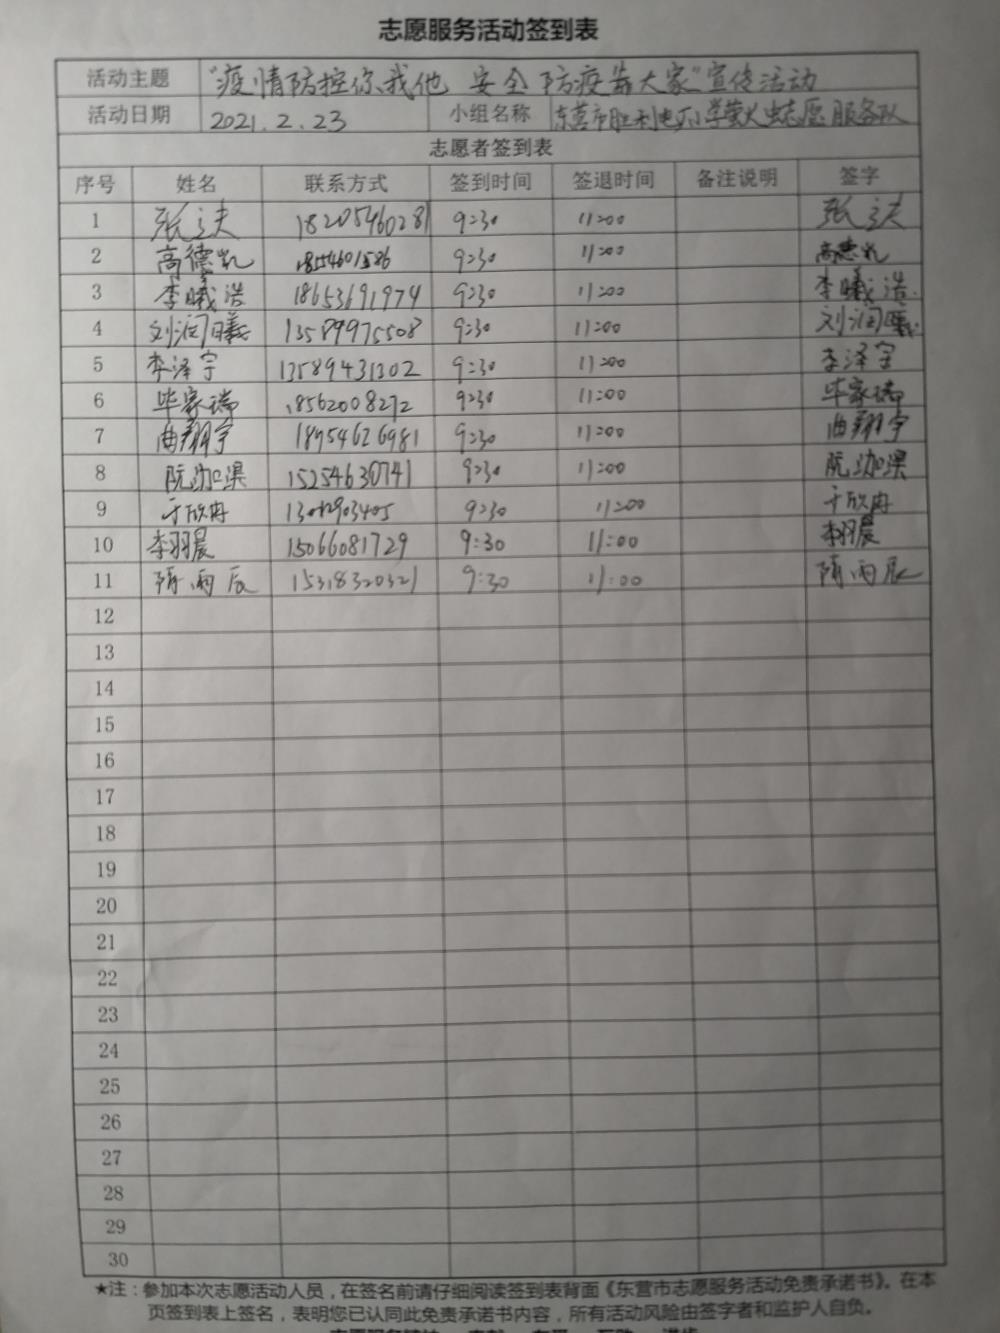 志愿服务活动签到表
活动主题 “疫情防控你、我他 安全防疫靠大家”宣传活动
活动日期 2021.2.23 小组名称 东营市胜利电厂小学萤火虫志愿服务队
志愿者签到表
序号 姓名 联系方式 签到时间 签退时间 备注说明 签字
1 张立夫 18205460281 9:30 11:00 张立夫
2 高德凯 18554601586 9:30 11:00 高德凯
3 李曦浩 18653691974 9:30 11:00 李曦浩
4 刘润曦 13589975508 9:30 11:00 刘润曦
5 李泽宇 13589431302 9:30 11:00 李泽宇
6 毕家瑞 18562008272 9:30 11:00 毕家瑞
7 曲翔宇 18954626981 9:30 11:00 曲翔宇
8 阮泇淏 15254630741 9:30 11:00 阮泇淏
9 于欣冉 9:30 11:00 于欣冉
10 李羽晨 15066081729 9:30 11:00 李羽晨
11 隋雨辰 15318320321 9:30 11:00 隋雨辰
12
13
14
15
16
17
18
19
20
21
22
23
24
25
26
27
28
29
30
★注：参加本次志愿活动人员，在签名前请仔细阅读签到表背面《东营市志愿服务活动免责承诺书》。在本
页签到表上签名，表明您已认同此免责承诺书内容，所有活动风险由签字者和监护人自负。